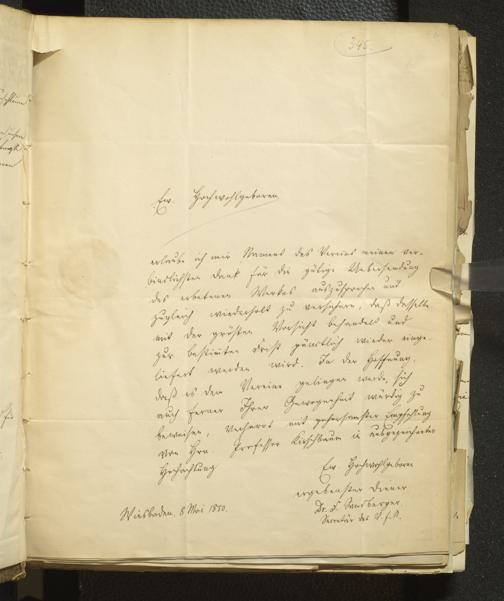 345.
Ew. Hochwohlgeboren
erlaube ich mir Namens des Vereins meinen ver-
bindlichsten Dank für die gütige Uebersendung
des erbetenen Werkes auszusprechen und
zugleich wiederholt zu versichern, daß dasselbe
mit der größten Vorsicht behandelt und
zur bestimmten Frist pünktlich wieder einge-
liefert werden wird. In der Hoffnung,
daß es dem Vereine gelingen werde, sich
auch ferner Ihrer Gewogenheit würdig zu
beweisen, verharrt mit gehorsamster Empfehlung
von Hrn. Professor Kirschbaum in ausgezeichneter
Hochachtung
Ew Hochwohlgeboren
ergebenster Diener
Dr. F. Sandberger
Secretär des V. f. N.
Wiesbaden, 8 Mai 1850.